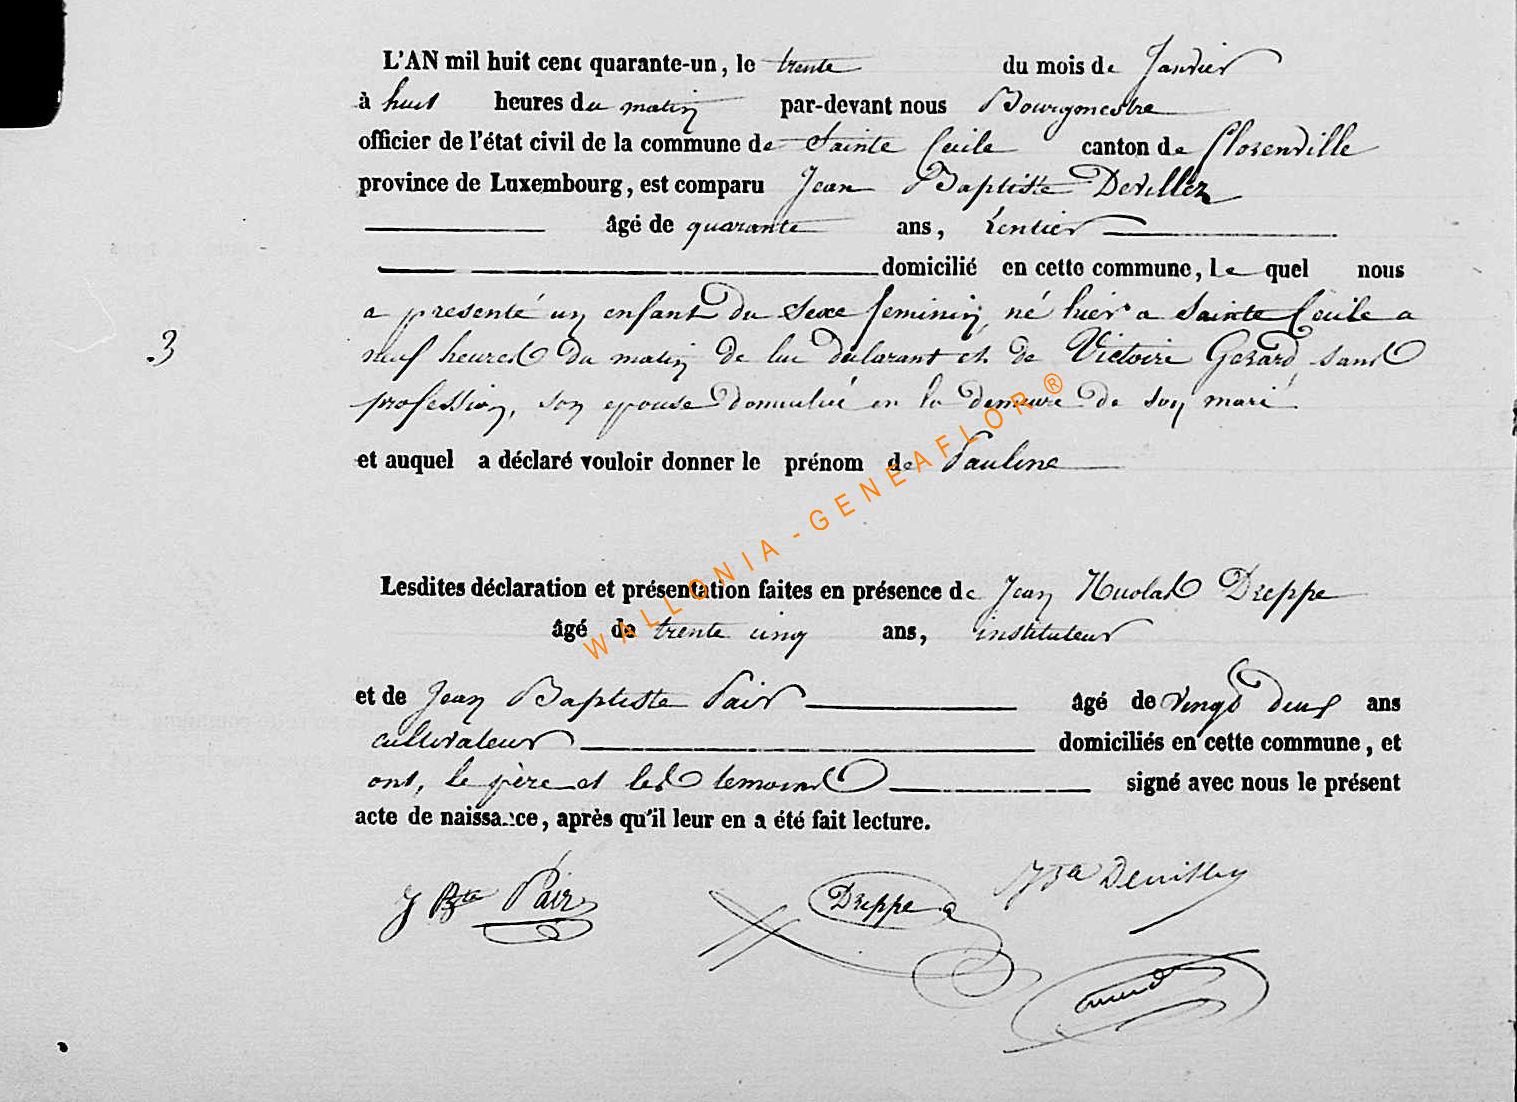 L'AN mil huit cent quarante-un, le trente du mois de Janvier
à huit heures du matin par-devant nous Bourgmestre
officier de l'état civil de la commune de Sainte Cecile canton de Florenville
province de Luxembourg, est comparu Jean Baptiste Devillez
âgé de quarante ans, rentier
domicilié en cette commune, le quel nous
a presenté un enfant du sexe feminin, né hier a Sainte Cecile a
neuf heures du matin de lui déclarant et de Victoire Gerard, sans
profession, son epouse domicilié en la demeure de son mari
3
et auquel a déclaré vouloir donner le prénom de Pauline
Lesdites déclaration et présentation faites en présence de Jean Nicolas Dreppe
âgé de trente cinq ans, instituteur
et de Jean Baptiste Pair âgé de vingt deux ans
cultivateur domiciliés en cette commune, et
ont, le père et les temoins signé avec nous le présent
acte de naissance, après qu'il leur en a été fait lecture.
J Bte Pair Dreppe
WALLONIA - GENEAFLOR ®